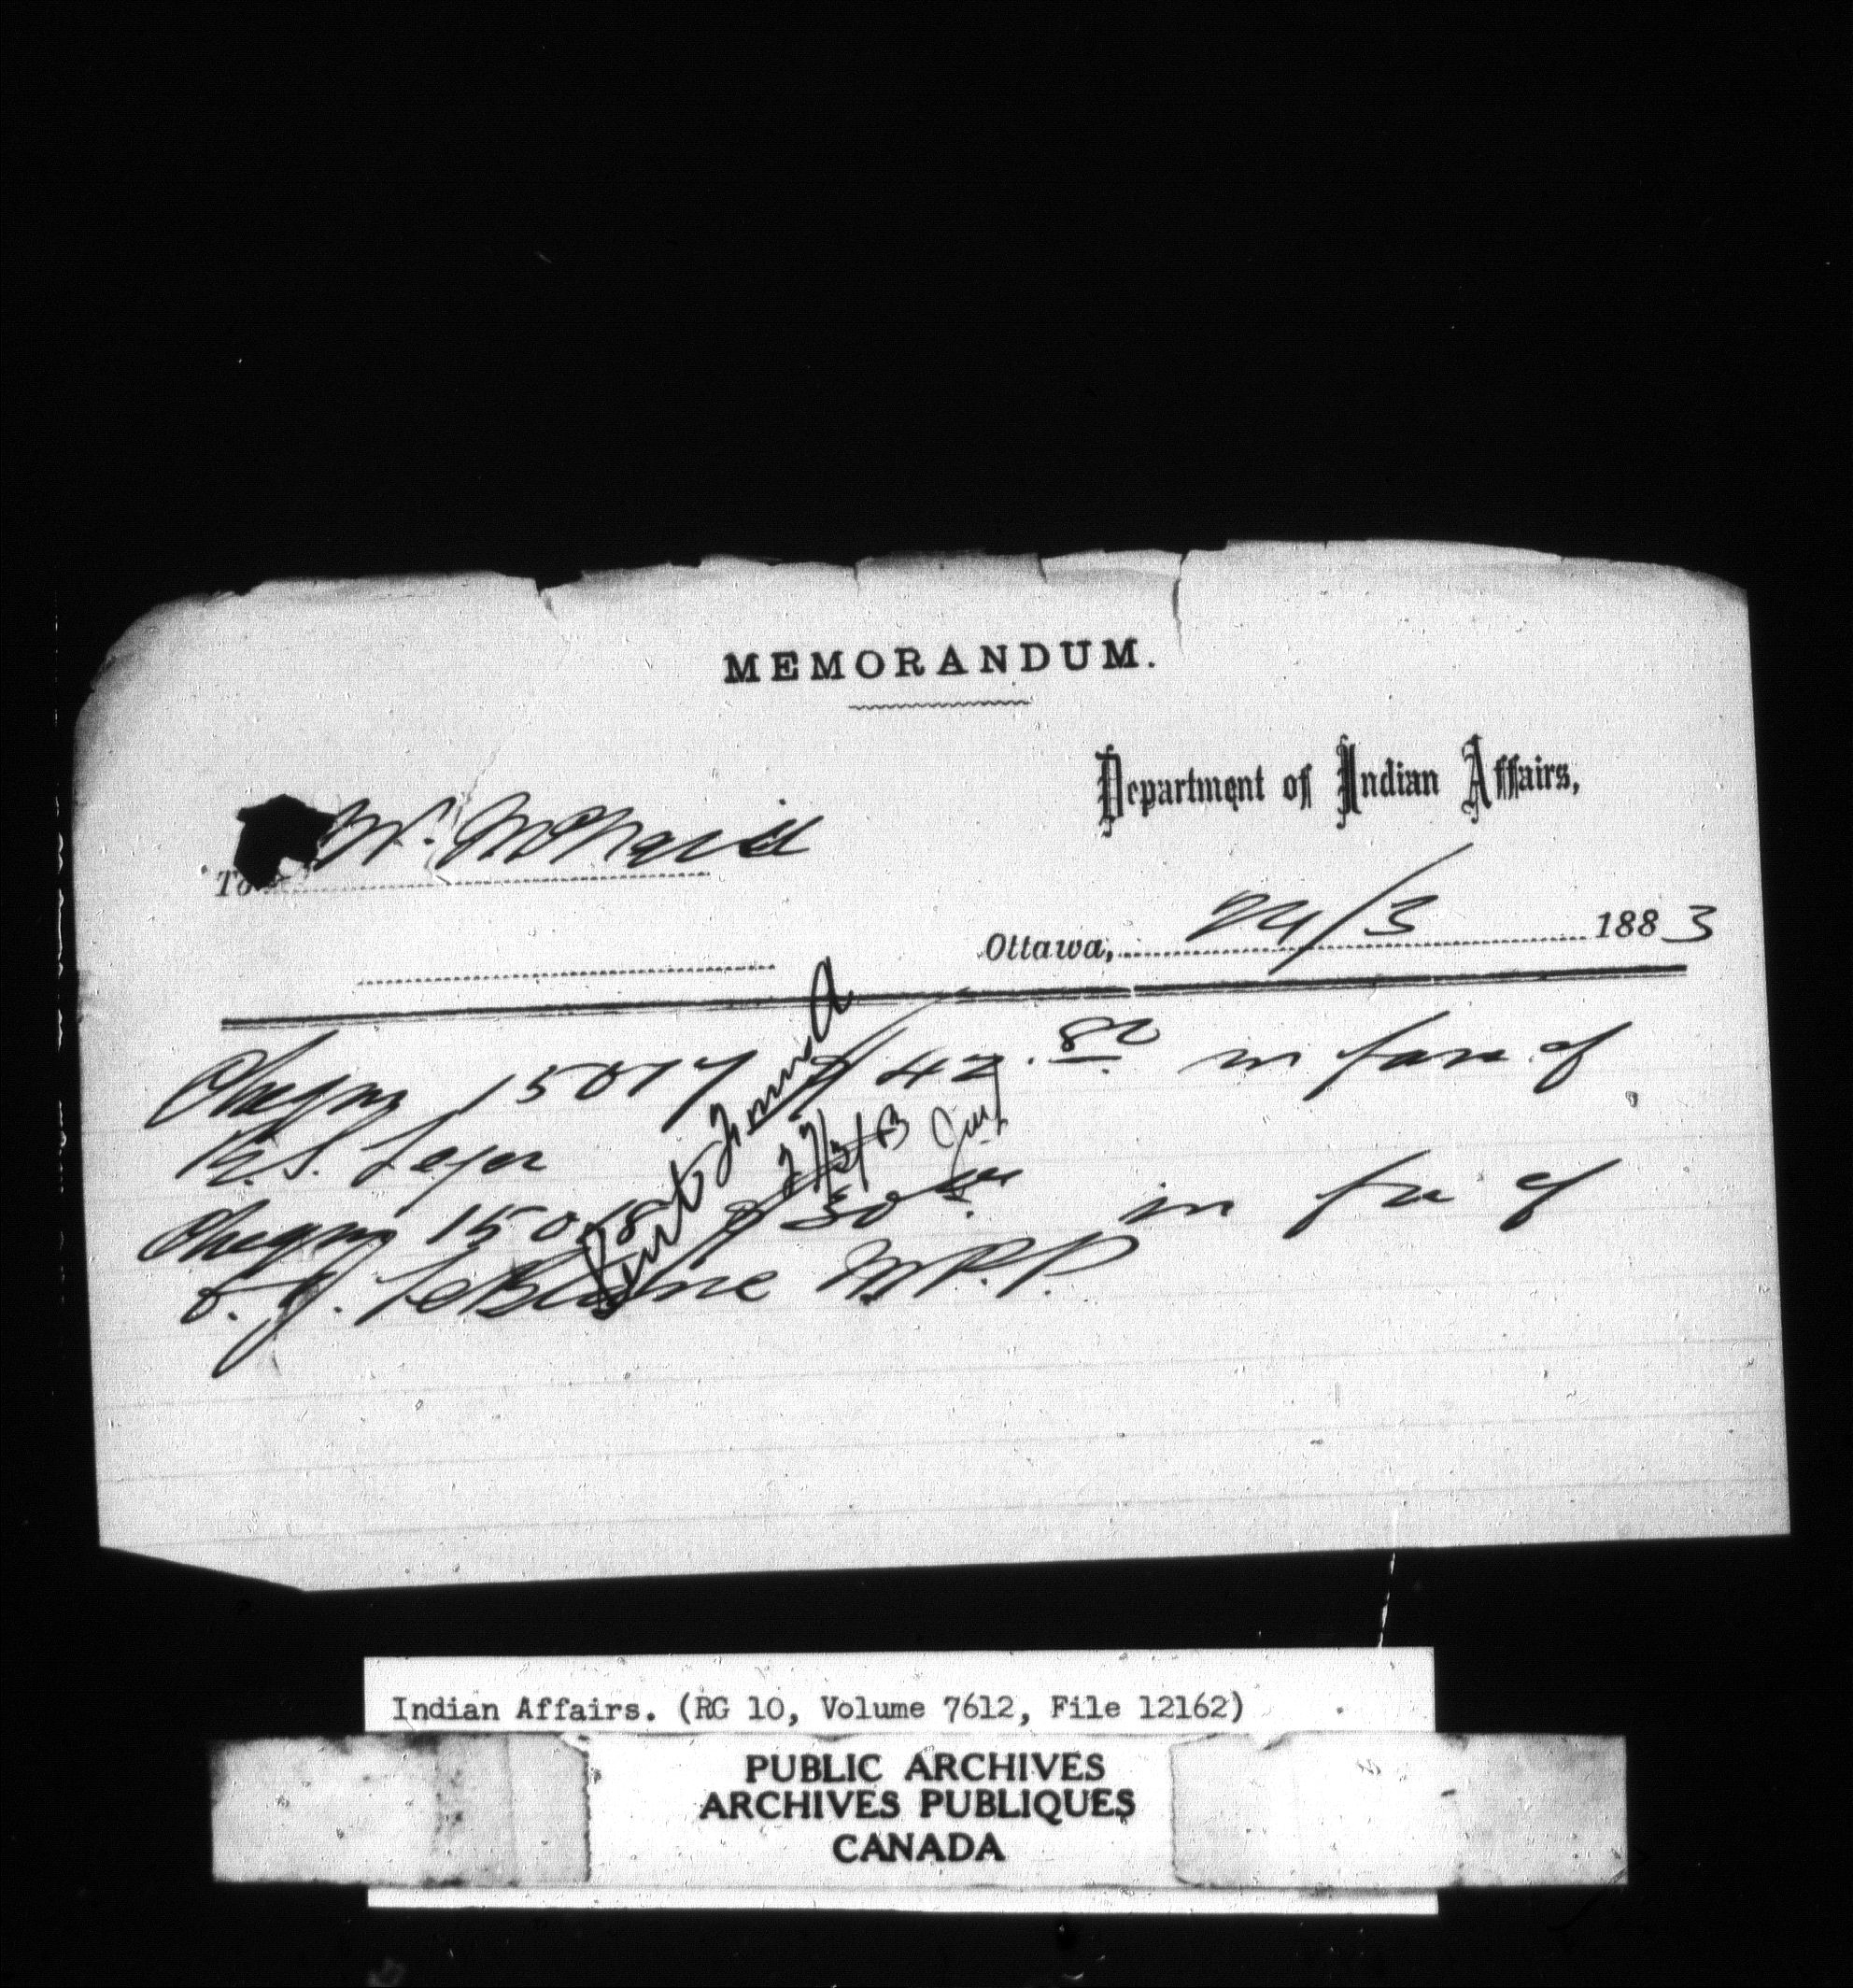 MEMORANDUM.
Department of Indian Affairs,
To Mr. McNeill
Ottawa, 24/3 1883
Cheque 15017 $ 42.80 in favr of
R.S. Leger
Cheque 15018 $ 50 in fvr of
O. J. LeBlanc M.P.P.
27/3/83
Indian Affairs. (RG 10, Volume 7612, File 12162)
PUBLIC ARCHIVES
ARCHIVES PUBLIQUES
CANADA